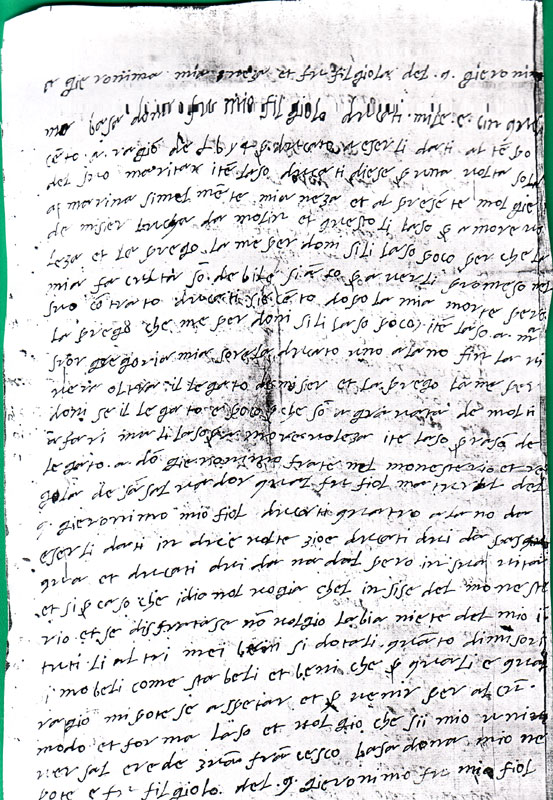 e gieronima mia neza et fu filgiola del q. gieronimo
ba basadona fu mio filgiolo ducati mile e cinque
cēto a ragiō de L 6 s 4 p ducato a eserli dati al tēpo
del suo maritar itē laso ducati diese p una volta sola
a marina similmēte mia neza et al presēte molgie
de miser lucha da molin et questo li laso p amorevo
leza et la prego la me perdoni si li laso poco per che la
mia facultà sō debite si ā to p averli promeso nel
suo cōtrato ducati siecēto dopo la mia morte pero
la prego che me perdoni si li laso poco itē laso a mᵃ
suor gregoria mia sorela ducato uno a lano fin la vi
vera oltra il legato de miser et la prego la me per
doni se il legato e poco p che sō agravata de molti
afari ma li laso p amorevoleza itē laso p rasō de
legato a dō gieronimo frate nel monesterio et re
gola de sā salvador qual fu fiol natural del
q. gieronimo mio fiol ducati quatro a lano da
eserli dati in due volte zioe ducati dui da pasq
qua et ducati dui da nadal pero in sua vita
et si p caso che idio nol vogia chel insise del moneste
rio et se disfratase nō volgio labia niete del mio i
tuti li altri mei beni si dotali quāto dimisori
i mobeli come stabeli et beni che p qual si e qual
ragiō mi potese aspetar et p venir per alcū
modo et forma laso et volgio che sii mio univer
versal erede zuā frācesco basadona mio ne
pote e fu filgiolo del q. gieronimo fu mio fiol